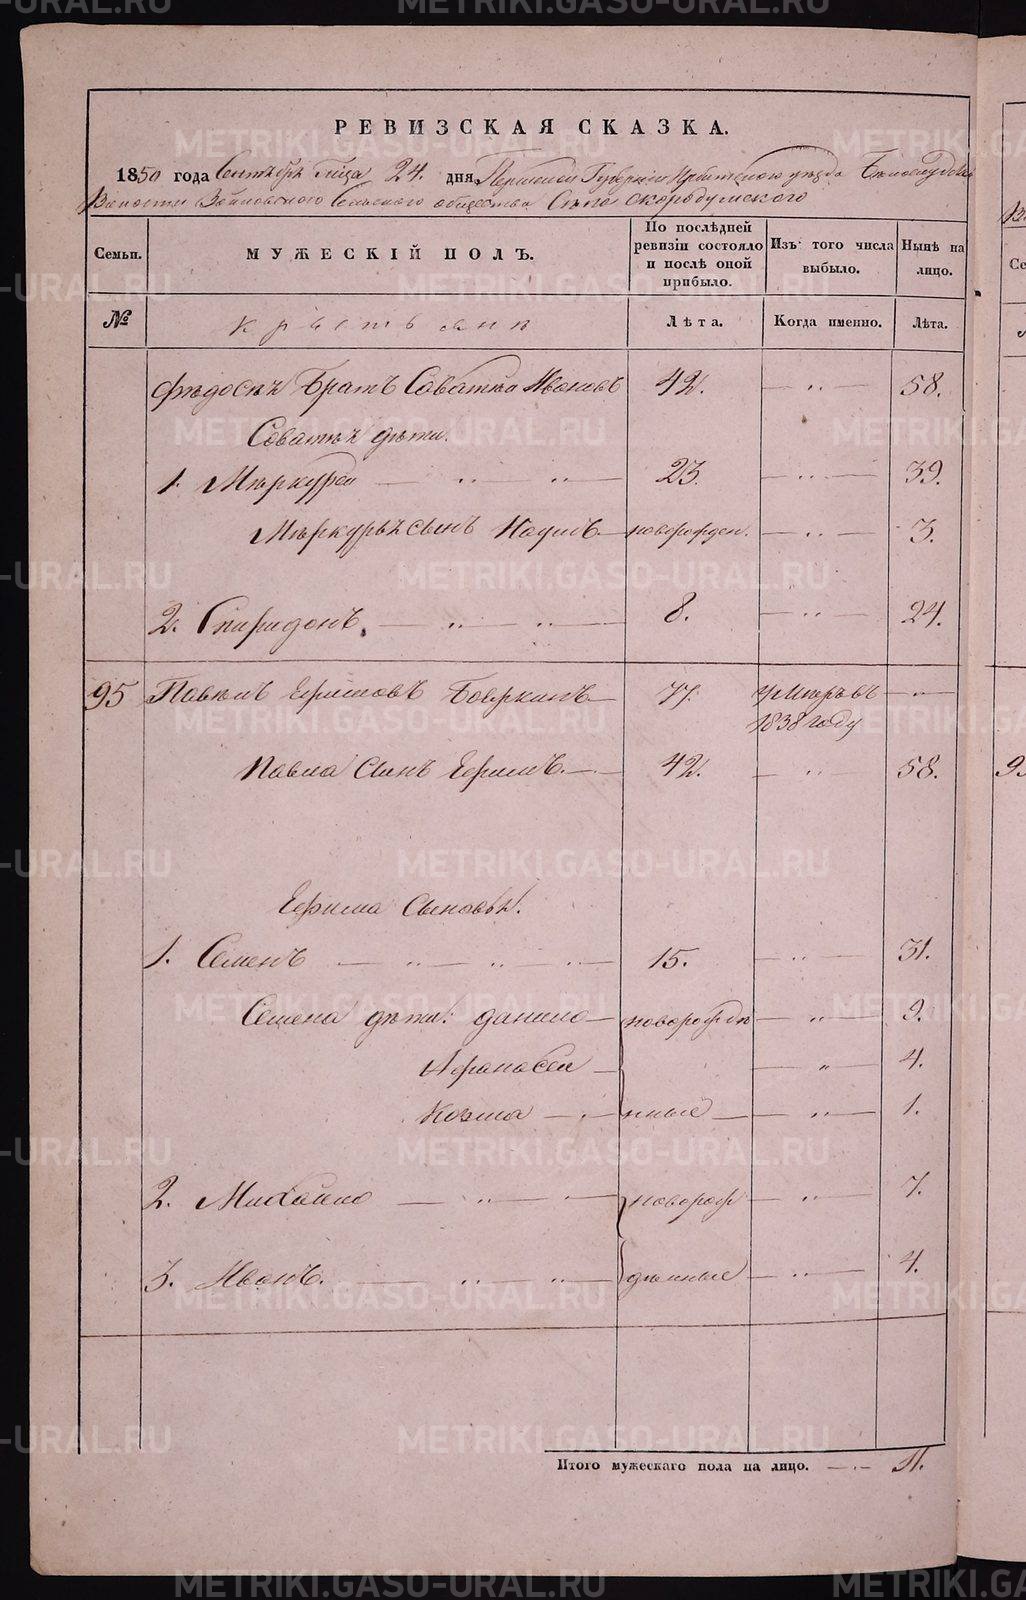 РЕВИЗСКАЯ СКАЗКА.
1850 года Сентября м̃ца 24. дня Пермской Губерніи Ирбитского уѣзда Бѣлослудской
Волости Зайковского Сельского общества Села Скородумского
Семьи. МУЖЕСКІЙ ПОЛЪ. По послѣдней ревизіи состояло и послѣ оной прибыло. Изъ того числа выбыло. Нынѣ на лицо.
№ крестьяне Лѣта. Когда именно. Лѣта.
Федосѣя Братъ Саватѣй Ивановъ 42. — „ — 58.
Саватѣя дѣти.
1. Меркурей — „ „ — 23. — „ — 39.
Меркурья сынъ — новорожден. — „ — 3.
2. Спиридонъ. — „ — „ — 8. — „ — 24.
95 Павелъ Ефимовъ Бояркинъ — 77. умеръ въ — „ —
1838 году
Павла Сынъ Ефимъ. — 42. — „ — 58.
Ефима Сыновья.
1. Семенъ — „ — „ — „ — 15. — „ — 31.
Семена дѣти: данило — новорожде — „ — 9.
Афанасей — — „ — 4.
Козма — нные — „ — 1.
2. Михайло — „ — „ — новорож — „ — 7.
3. Иванъ. — „ — „ — денные — „ — 4.
Итого мужескаго пола на лицо. — 11.
METRIKI.GASO-URAL.RU